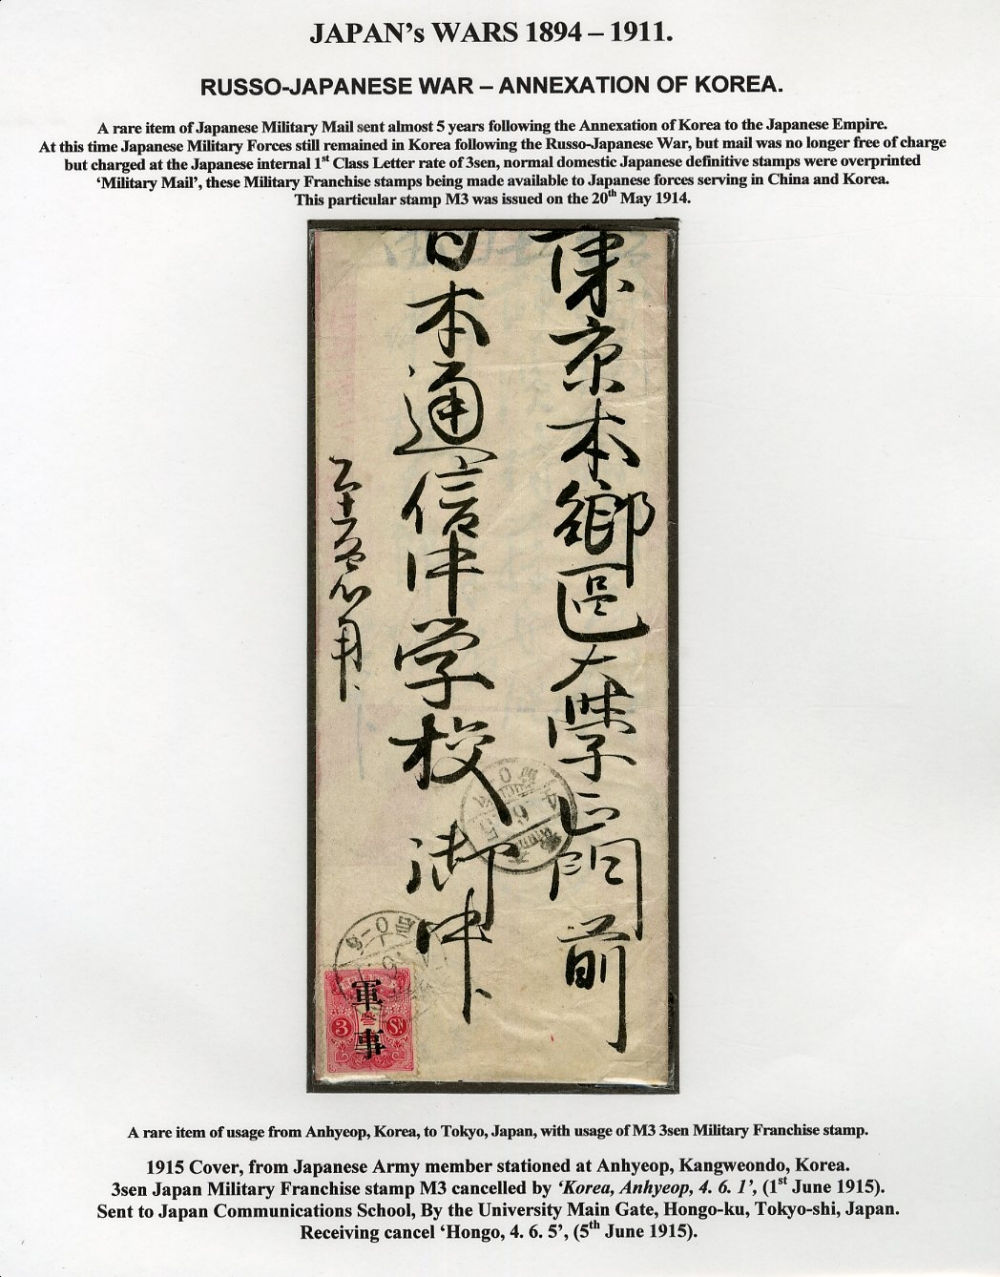 JAPAN's WARS 1894 – 1911.
RUSSO-JAPANESE WAR – ANNEXATION OF KOREA.
A rare item of Japanese Military Mail sent almost 5 years following the Annexation of Korea to the Japanese Empire.
At this time Japanese Military Forces still remained in Korea following the Russo-Japanese War, but mail was no longer free of charge
but charged at the Japanese internal 1st Class Letter rate of 3sen, normal domestic Japanese definitive stamps were overprinted
‘Military Mail’, these Military Franchise stamps being made available to Japanese forces serving in China and Korea.
This particular stamp M3 was issued on the 20th May 1914.
東京本郷區大學正門前
日本通信中学校 御中
軍事
3
Sn
4 6 5
A rare item of usage from Anhyeop, Korea, to Tokyo, Japan, with usage of M3 3sen Military Franchise stamp.
1915 Cover, from Japanese Army member stationed at Anhyeop, Kangweondo, Korea.
3sen Japan Military Franchise stamp M3 cancelled by ‘Korea, Anhyeop, 4. 6. 1’, (1st June 1915).
Sent to Japan Communications School, By the University Main Gate, Hongo-ku, Tokyo-shi, Japan.
Receiving cancel ‘Hongo, 4. 6. 5’, (5th June 1915).